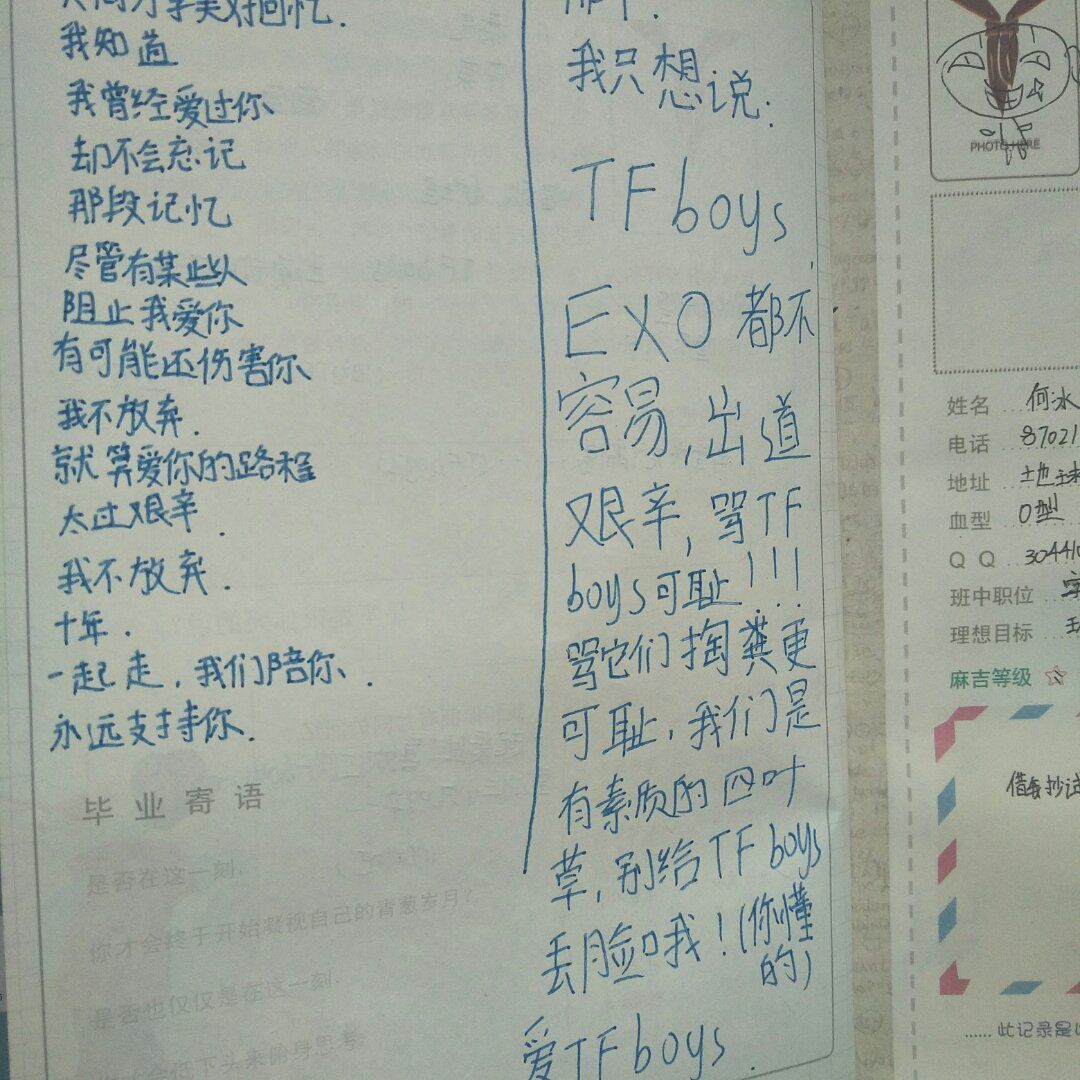 美好回忆.
我知道
我曾经爱过你
却不会忘记
那段记忆
尽管有某些人
阻止我爱你
有可能还伤害你
我不放弃.
就算爱你的路程
太过艰辛.
我不放弃.
十年.
一起走,我们陪你.
永远支持你.
毕业寄语
是否在这一刻,
你才会终于开始凝视自己的青葱岁月?
是否也仅仅是在这一刻,
会低下头来俯身思考
我只想说.
TFboys
EXO都不
容易,出道
艰辛,骂TF
boys可耻!!!
骂它们掏粪更
可耻,我们是
有素质的四叶
草,别给TFboys
丢脸哦!(你懂
的)
爱TFboys.
PHOTO HERE
姓名 何冰
电话 87021
地址 地球
血型 O型
QQ 30441
班中职位
理想目标
麻吉等级
......此记录是